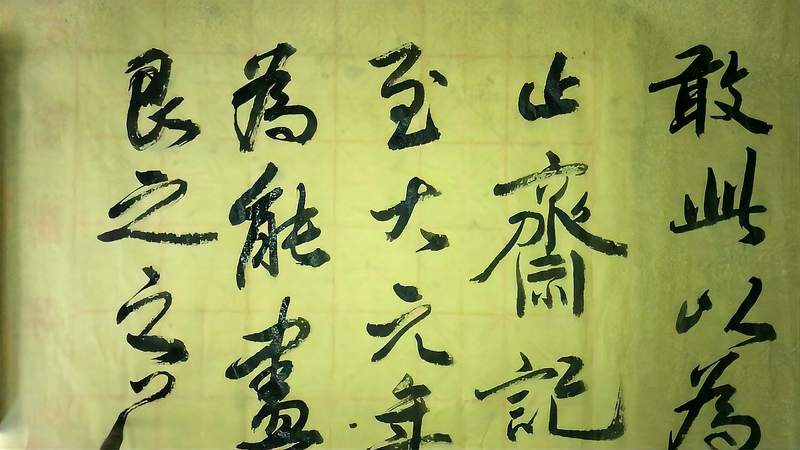 敢此以為
止齋記
至大元年
為能盡
艮之之